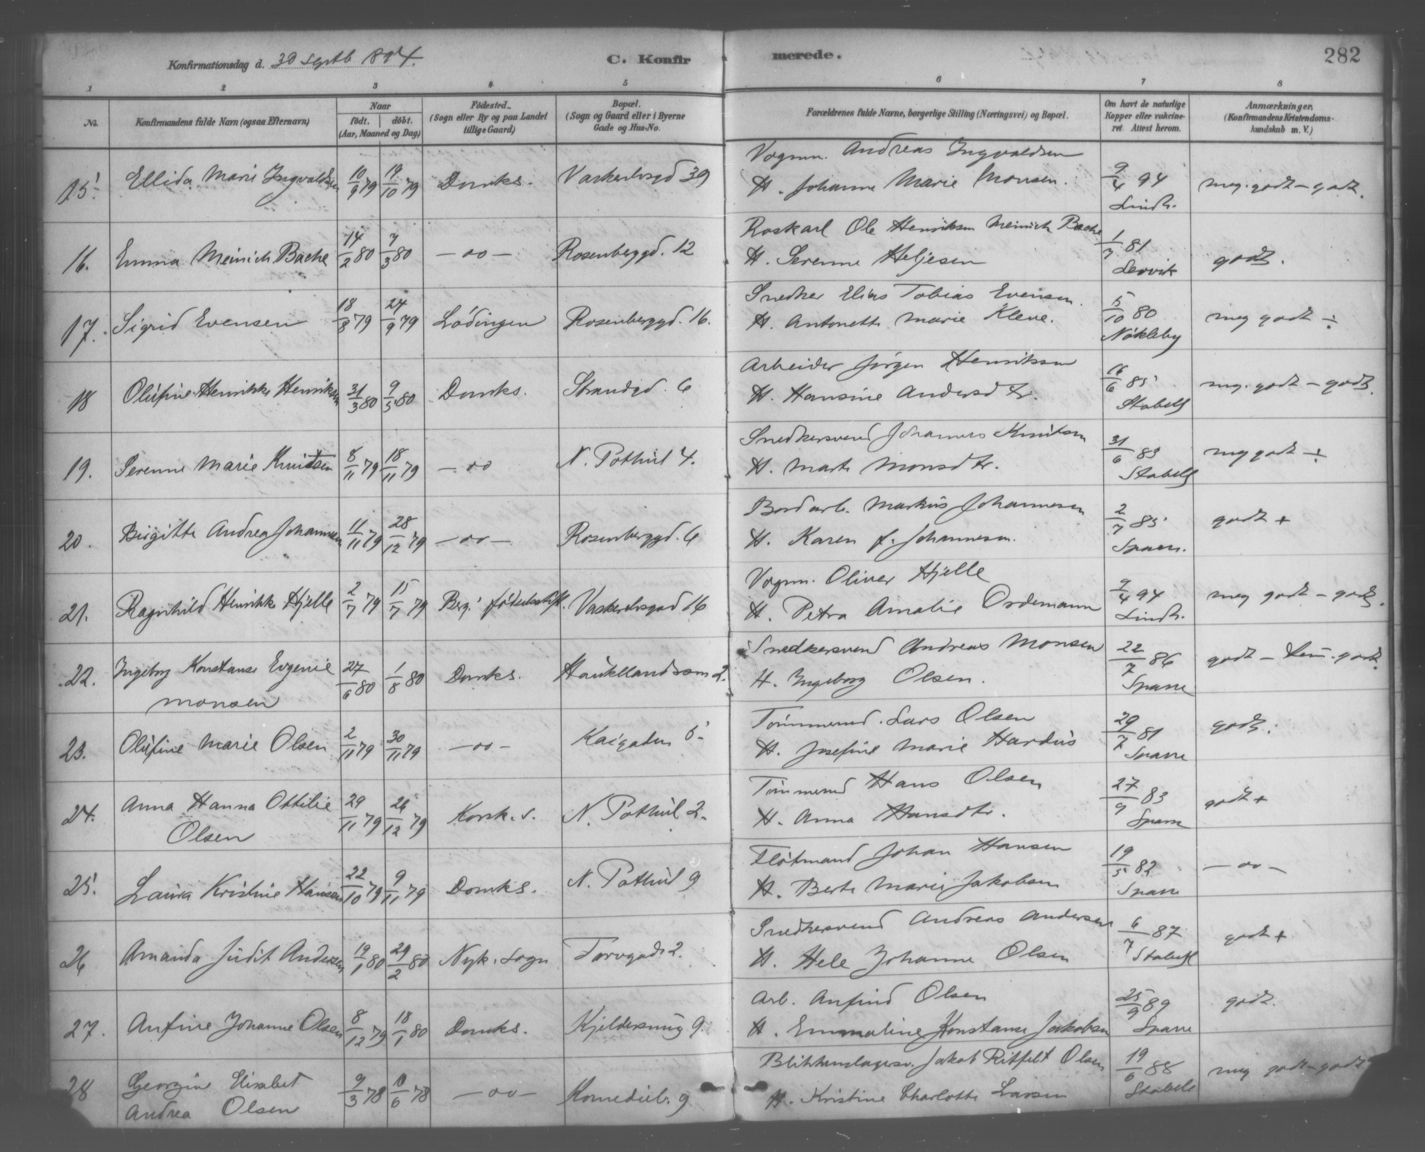 Konfirmationsdag d. 30 Septb 1894.
C. Konfirmerede.
282
1 2 3 4 5 6 7 8
No.
Konfirmandens fulde Navn (ogsaa Efternavn)
Naar
født. døbt.
(Aar, Maaned og Dag)
Fødested.
(Sogn eller By og paa Landet
tillige Gaard)
Bopæl.
(Sogn og Gaard eller i Byerne
Gade og Hus-No.
Forældrenes fulde Navne, borgerlige Stilling (Næringsvei) og Bopæl.
Om havt de naturlige
Kopper eller vakcine-
ret. Attest herom.
Anmærkninger.
(Konfirmandens Kristendoms-
kundskab m. V.)
15. Ellida Marie Ingvaldsen 10/9 79 19/10 79 Domks. 39
Vogmn. Andreas Ingvaldsen
H. Johanne Marie Monsen. 9/4 94 Lindh. meg. godt – godt.
16. Emma Meinich Bache 14/2 80 7/3 80 – oo – Rosenberggd. 12
Ole Henriksen Meinich Bache
H. Serenne Heljesen 1/7 81 godt.
17. Sigrid Evensen 18/8 79 24/9 79 Lödingen Rosenberggd. 16.
Snedker Elias Tobias Evensen.
H. Antonette Marie Kleve. 5/10 80 Nökleby meg godt ÷
18 Olufine Henrikke Henriksen 31/3 80 9/5 80 Domks. Strandgd. 6
Arbeider Jörgen Henriksen
H. Hansine Andersdtr. 16/6 85 Stabell meg. godt – godt.
19. Serenne Marie Knutsen 8/11 79 18/11 79 – oo N. Pothul 4.
Snedkersvend Johannes Knutsen
H. Marte Monsdtr. 31/6 83 Stabell meg godt ÷
20. Birgitte Andrea Johannesen 11/11 79 28/12 79 – oo – Rosenberggd. 6
Bordarb. Markus Johannesen
H. Karen f. Johannesen. 2/7 85 Sparre. godt +
21. Ragnhild Henrikke Hjelle 2/7 79 15/7 79 Berg. födselsstift. 16
Vogmn. Oliver Hjelle
H. Petra Amalie Ordemann 2/4 94 Lindh. meg godt – godt.
22. Ingeborg Konstanse Evgenie
Monsen 27/6 80 1/8 80 Domks. 2.
Snedkersvend Andreas Monsen
H. Ingeborg Olsen. 22/7 86 Sparre godt – tem. godt.
23. Olufine Marie Olsen 2/11 79 30/11 79 – oo – Kaigaten 5
Tömmermd. Lars Olsen
H. Josefine Marie Hardus 29/7 81 Sparre godt.
24. Anna Hanna Ottilie
Olsen 29/11 79 26/12 79 Korsk. s. N. Pothul 2.
Tömmermd Hans Olsen
H. Anna Hansdtr. 27/9 83 Sparre godt +
25. Laura Kristine Hansen 22/10 79 9/11 79 Domks. N. Pothul 9
Flötmand Johan Hansen
H. Berte Marie Jakobsen 19/5 82 Sparre – oo –
26 Amanda Judit Andersen 19/1 80 29/2 80 Nyk. sogn Torvgade 2.
Snedkersvend Andreas Andersen
H. Hele Johanne Olsen 6/7 87 Stabell godt +
27. Anfine Johanne Olsen 8/12 79 18/1 80 Domks. Kjeldersmug 9.
Arb. Anfind Olsen
H. Emmaline Konstanse Jakobsen 25/9 89 Sparre godt.
28 Georgine Elisabet
Andrea Olsen 9/3 78 10/6 78 – oo – Komedieb. 9
Blikkenslagersv. Jakob Ritfelt Olsen
H. Kristine Charlotte Larsen 19/6 88 Stabell meg godt – godt